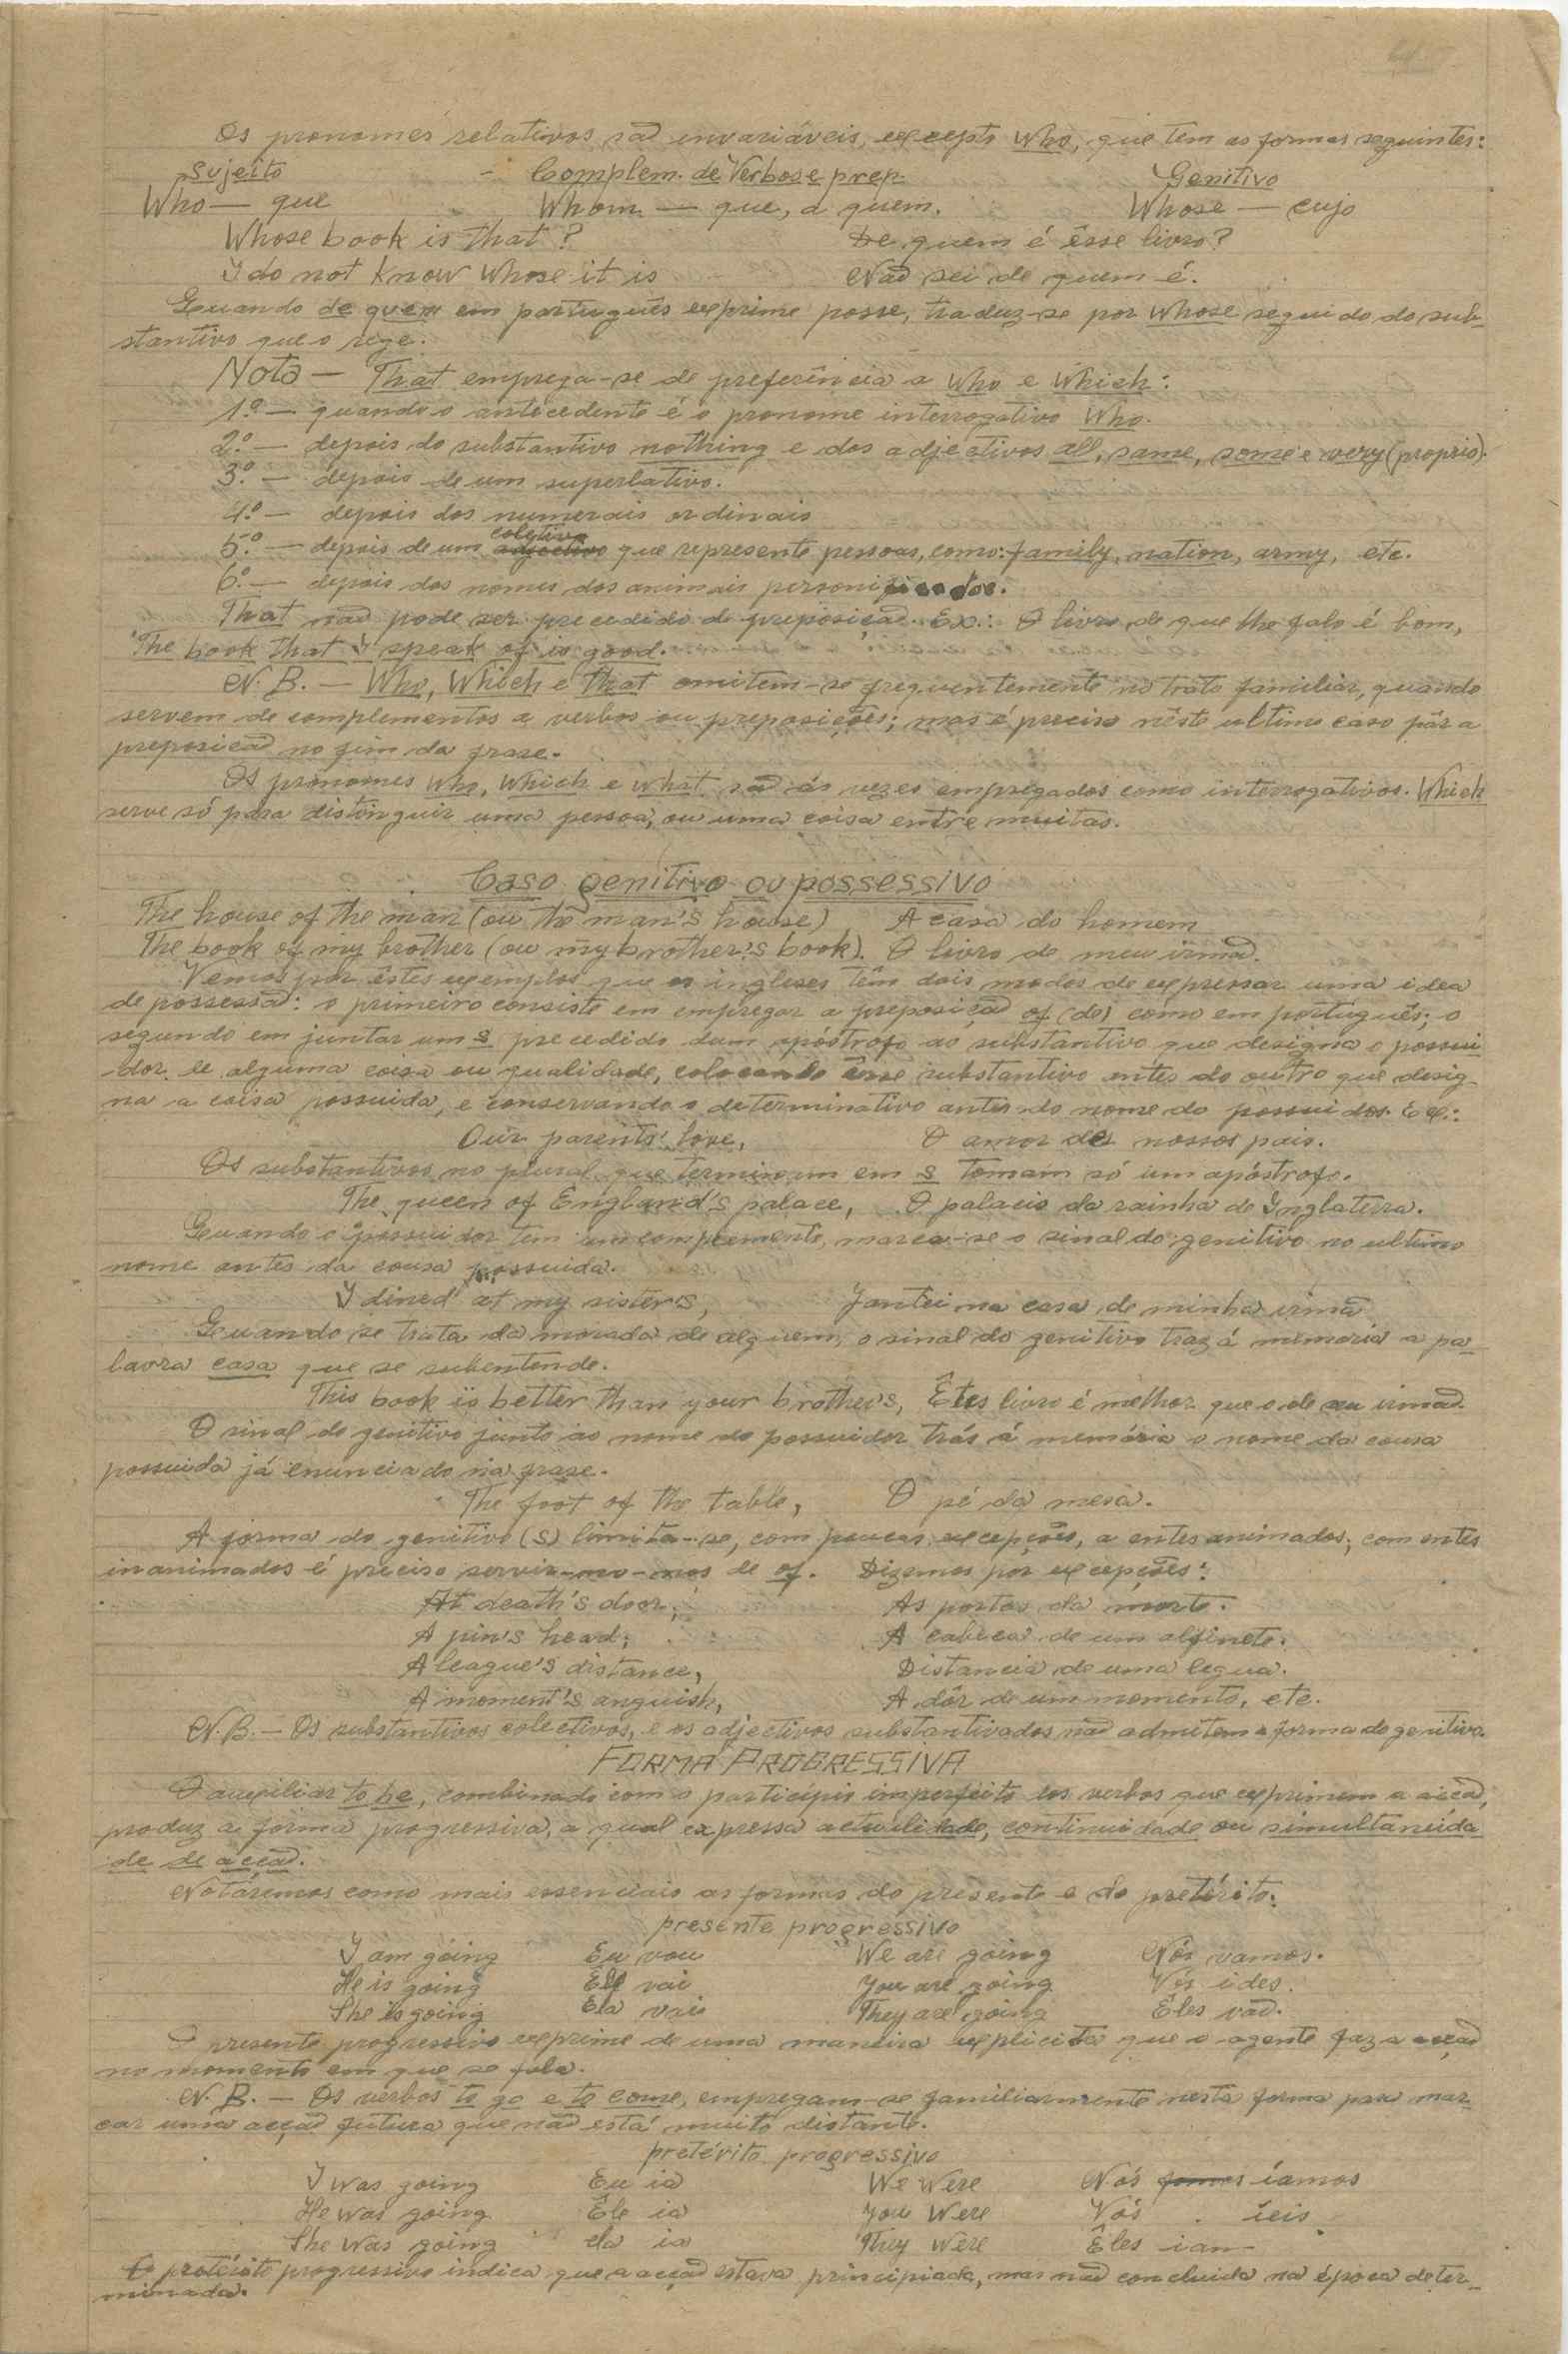 Os pronomes relativos são invariáveis, excepto Who, que tem as formas seguintes:
sujeito - Complem. de Verbos e prep. Genitivo
Who — que Whom — que, a quem. Whose — cujo
Whose book is that? De quem é êsse livro?
I do not know whose it is Não sei de quem é.
Quando de quem em português exprime posse, traduz-se por whose seguido do sub-
stantivo que o rege.
Nota — That emprega-se de preferência a who e which:
1.º — quando o antecedente é o pronome interrogativo Who.
2.º — depois do substantivo nothing e dos adjectivos all, same, some e very (proprio).
3.º — depois de um superlativo.
4.º — depois dos numerais ordinais
5.º — depois de um adjectivo coletivo que represente pessoas, como: family, nation, army, etc.
6.º — depois dos nomes dos animais personificados.
That não pode ser precedido de preposição. Ex.: O livro de que lhe falo é bom,
The book that I speak of is good.
N. B. — Who, Which e that omitem-se frequentemente no trato familiar, quando
servem de complementos a verbos ou preposições; mas é preciso nêste ultimo caso pôr a
preposicão no fim da frase.
Os pronomes who, which e what são ás vezes empregados como interrogativos. Which
serve só para distinguir uma pessoa, ou uma coisa entre muitas.
Caso genitivo ou possessivo
The house of the man (ou the man's house) A casa do homem
The book of my brother (ou my brother's book). O livro de meu irmão.
Vemos por êstes exemplos que os ingleses têm dois modos de expressar uma idea
de possessão: o primeiro consiste em empregar a preposição of (de) como em português; o
segundo em juntar um s precedido dum apóstrofo ao substantivo que designa o possui
dor de alguma coisa ou qualidade, colocando êsse substantivo antes do outro que desig-
na a coisa possuida, e conservando o determinativo antes do nome do possuidor. Ex.:
Our parents' love, O amor de nossos pais.
Os substantivos no plural que terminam em s tomam só um apóstrofo.
The queen of England's palace, O palacio da rainha de Inglaterra.
Quando o possuidor tem um complemento, marca-se o sinal do genitivo no ultimo
nome antes da cousa possuida.
I dined at my sister's, Jantei na casa de minha irmã
Quando se trata da morada de alguem, o sinal do genitivo traz á memoria a pa-
lavra casa que se subentende.
This book is better than your brother's, Êstes livro é melhor que o de seu irmão.
O sinal do genitivo junto ao nome do possuidor trás á memória o nome da cousa
possuida já enunciado na frase.
The foot of the table, O pé da mesa.
A forma do genitivo (s) limita-se, com poucas excepções, a entes animados; com entes
inanimados é preciso servir-mo-nos de of. Dizemos por excepções:
At death's door; As portas da morte.
A pin's head; A cabeca de um alfinete.
A league's distance, Distancia de uma legua.
A moment's anguish, A dôr de um momento, etc.
N. B. — Os substantivos colectivos, e os adjectivos substantivados não admitem a forma do genitivo.
FORMA PROGRESSIVA
O auxiliar to be, combinado com o particípio imperfeito dos verbos que exprimem a acção,
produz a forma progressiva, a qual expressa actualidade, continuidade ou simultaneida
de de acção.
Notáremos como mais essenciais as formas do presente e do pretérito:
presente progressivo
I am going Eu vou We are going Nós vamos.
He is going Ele vai You are going Vós ides.
She is going Ela vai They are going Êles vão.
O presente progressivo exprime de uma maneira explicita que o agente faz a acção
no momento em que se fala.
N. B. — Os verbos to go e to come, empregam-se familiarmente nesta forma para mar-
car uma acção futura que não está muito distante.
pretérito progressivo
I was going Eu ia We were Nós íamos
He was going Êle ia You were Vós íeis
She was going ela ia They were Êles iam
O pretérito progressivo indica que a acção estava principiada, mas não concluida na época deter-
minada.